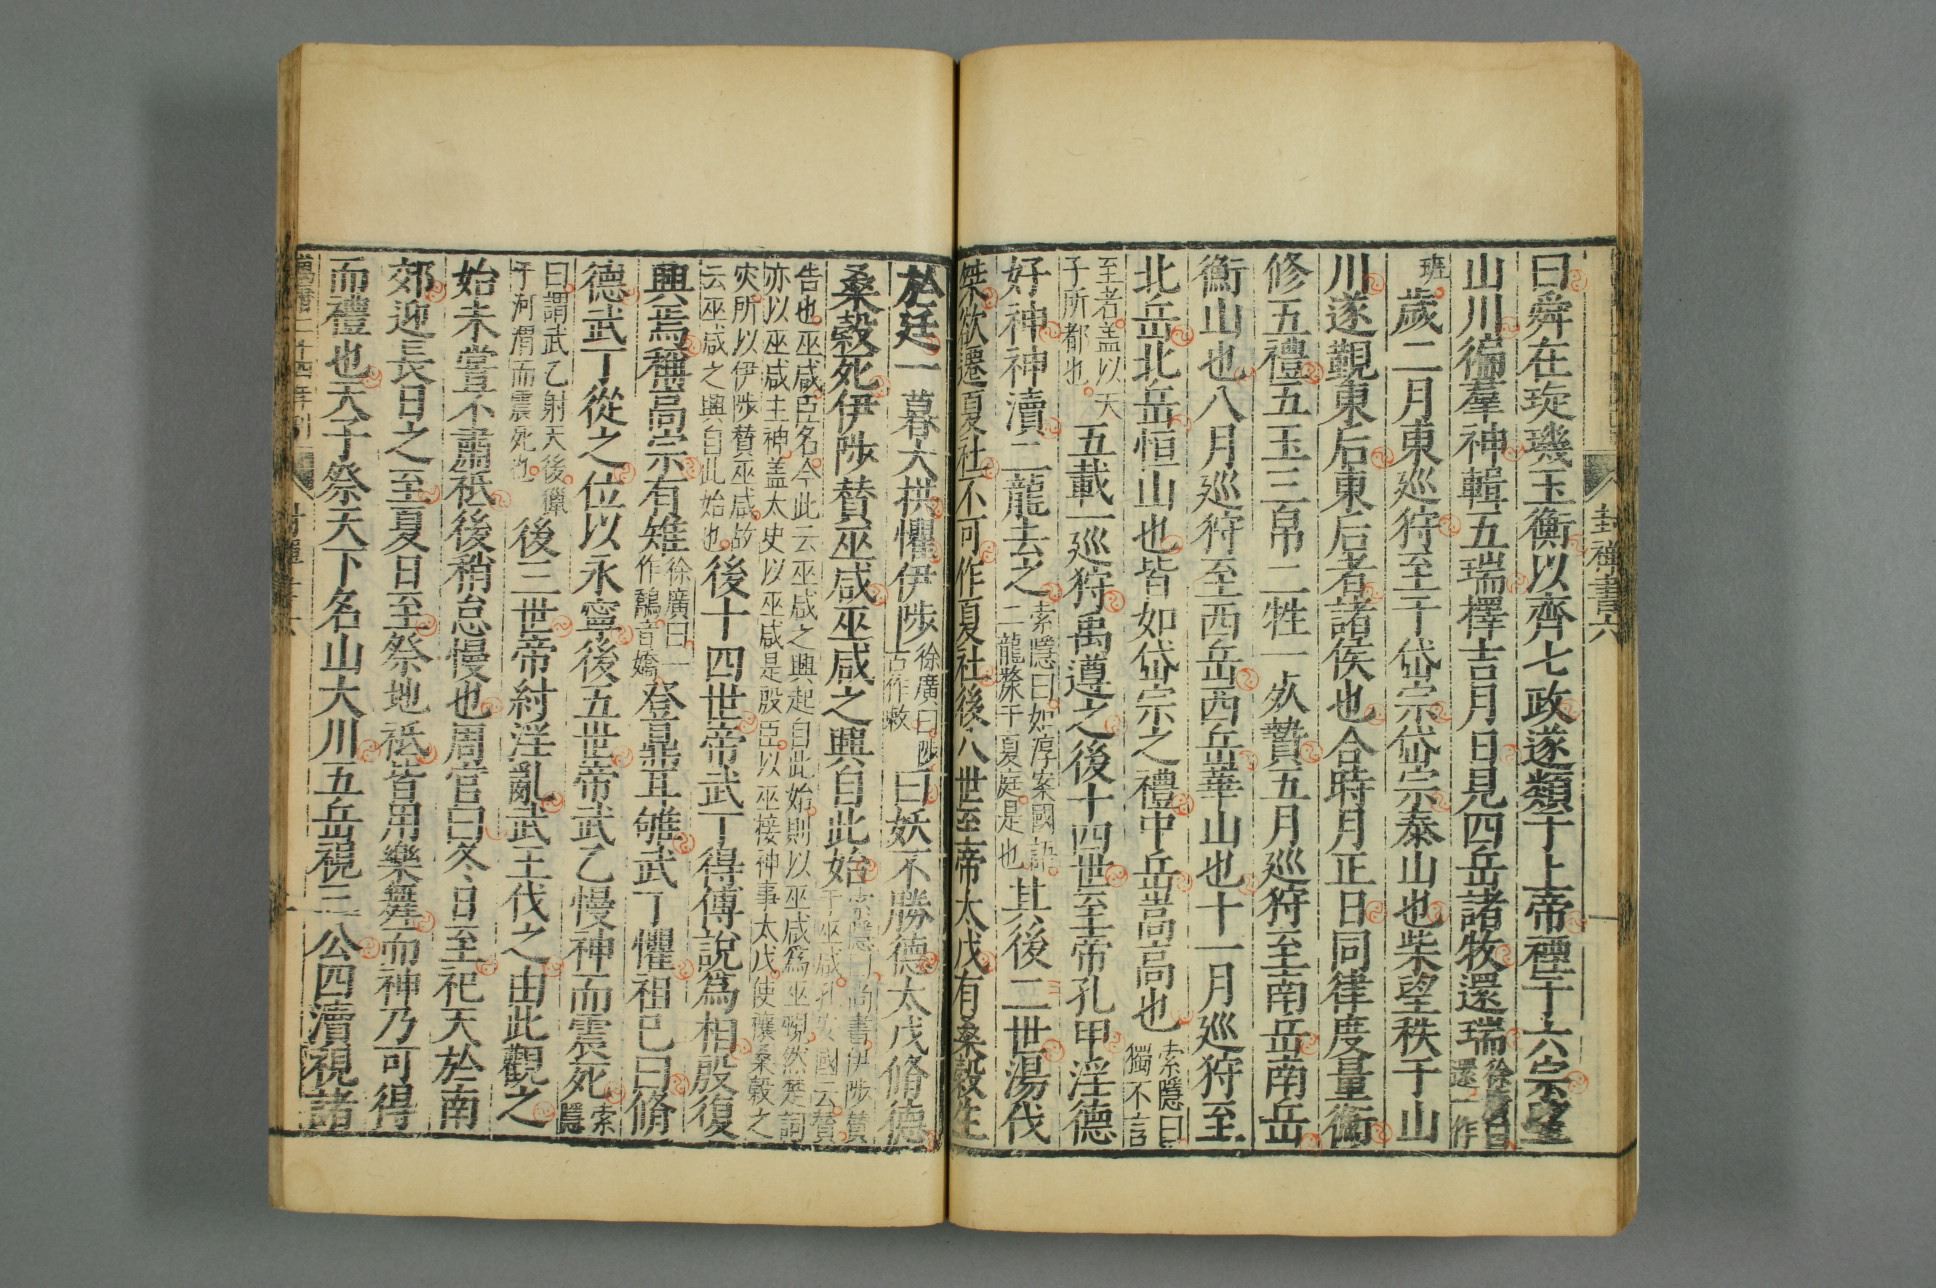 封禪書六
曰舜在琁璣玉衡以齊七政遂類于上帝禋于六宗望
山川徧羣神輯五瑞擇吉月日見四岳諸牧還瑞徐廣曰還一作
班歲二月東巡狩至于岱宗岱宗泰山也柴望秩于山
川遂覲東后東后者諸侯也合時月正日同律度量衡
修五禮五玉三帛二牲一死贄五月巡狩至南岳南岳
衡山也八月巡狩至西岳西岳華山也十一月巡狩至
北岳北岳恒山也皆如岱宗之禮中岳嵩高也索隱曰獨不言
至者蓋以天子所都也五載一巡狩禹遵之後十四世至帝孔甲淫德
好神神瀆二龍去之索隱曰如淳案國語二龍漦于夏庭是也其後三世湯伐
桀欲遷夏社不可作夏社後八世至帝太戊有桑榖生
於廷一暮大拱懼伊陟徐廣曰陟古作敕曰妖不勝德太戊脩德
桑榖死伊陟贊巫咸巫咸之興自此始索隱曰尚書伊陟贊于巫咸孔安國云贊
告也巫咸臣名今此云巫咸之興起自此始則以巫咸爲巫覡然楚詞
亦以巫咸主神蓋太史以巫咸是殷臣以巫接神事太戊使禳桑榖之
灾所以伊陟贊巫咸故云巫咸之興自此始也後十四世帝武丁得傅說爲相殷復
興焉稱高宗有雉徐廣曰一作鷮音嬌登鼎耳雊武丁懼祖己曰脩
德武丁從之位以永寧後五世帝武乙慢神而震死索隱
曰謂武乙射天後獵于河渭而震死也後三世帝紂淫亂武王伐之由此觀之
始未嘗不肅祗後稍怠慢也周官曰冬日至祀天於南
郊迎長日之至夏日至祭地祗皆用樂舞而神乃可得
而禮也天子祭天下名山大川五岳視三公四瀆視諸